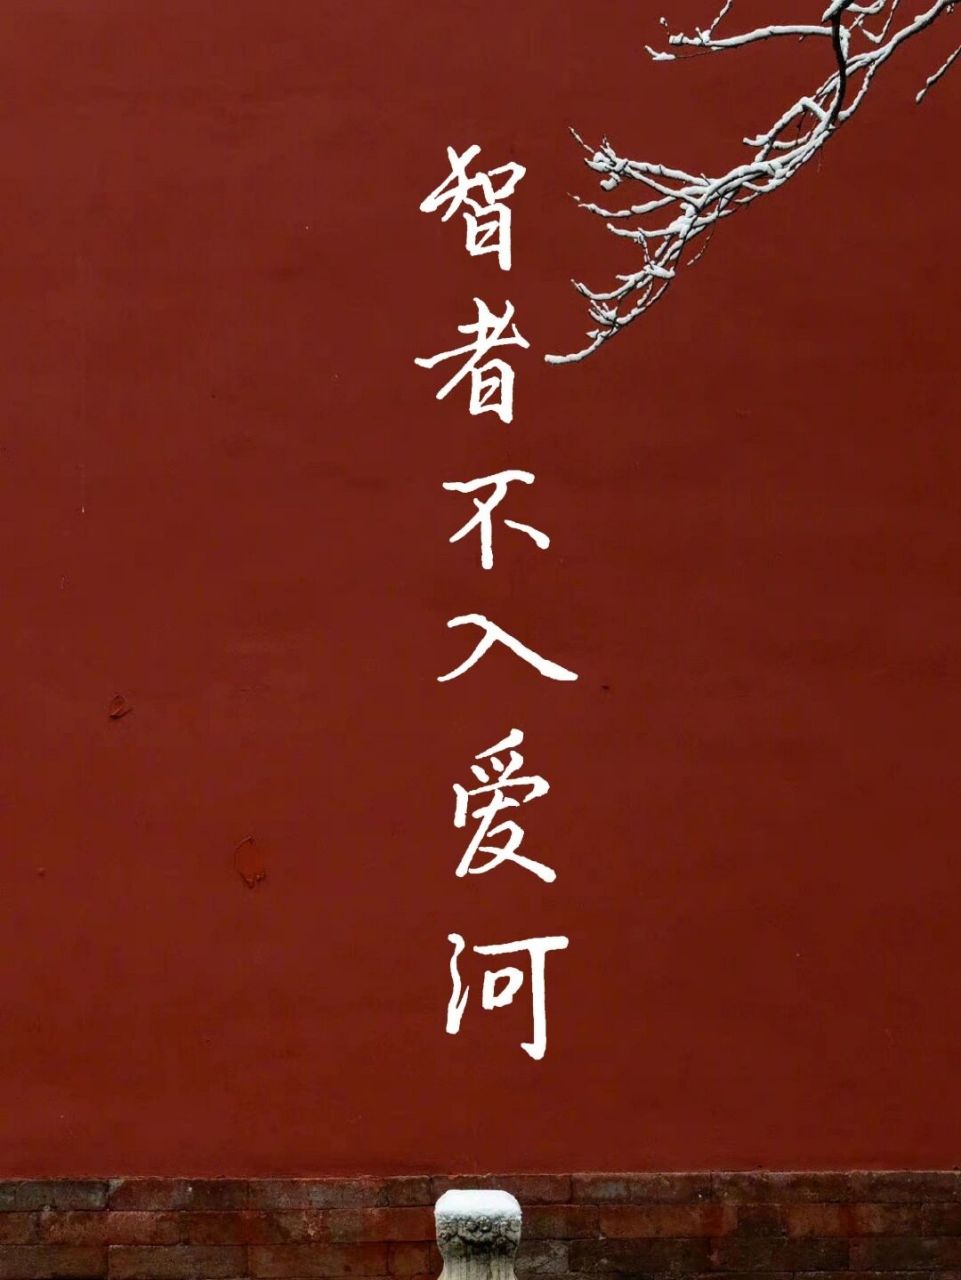 智者不入爱河